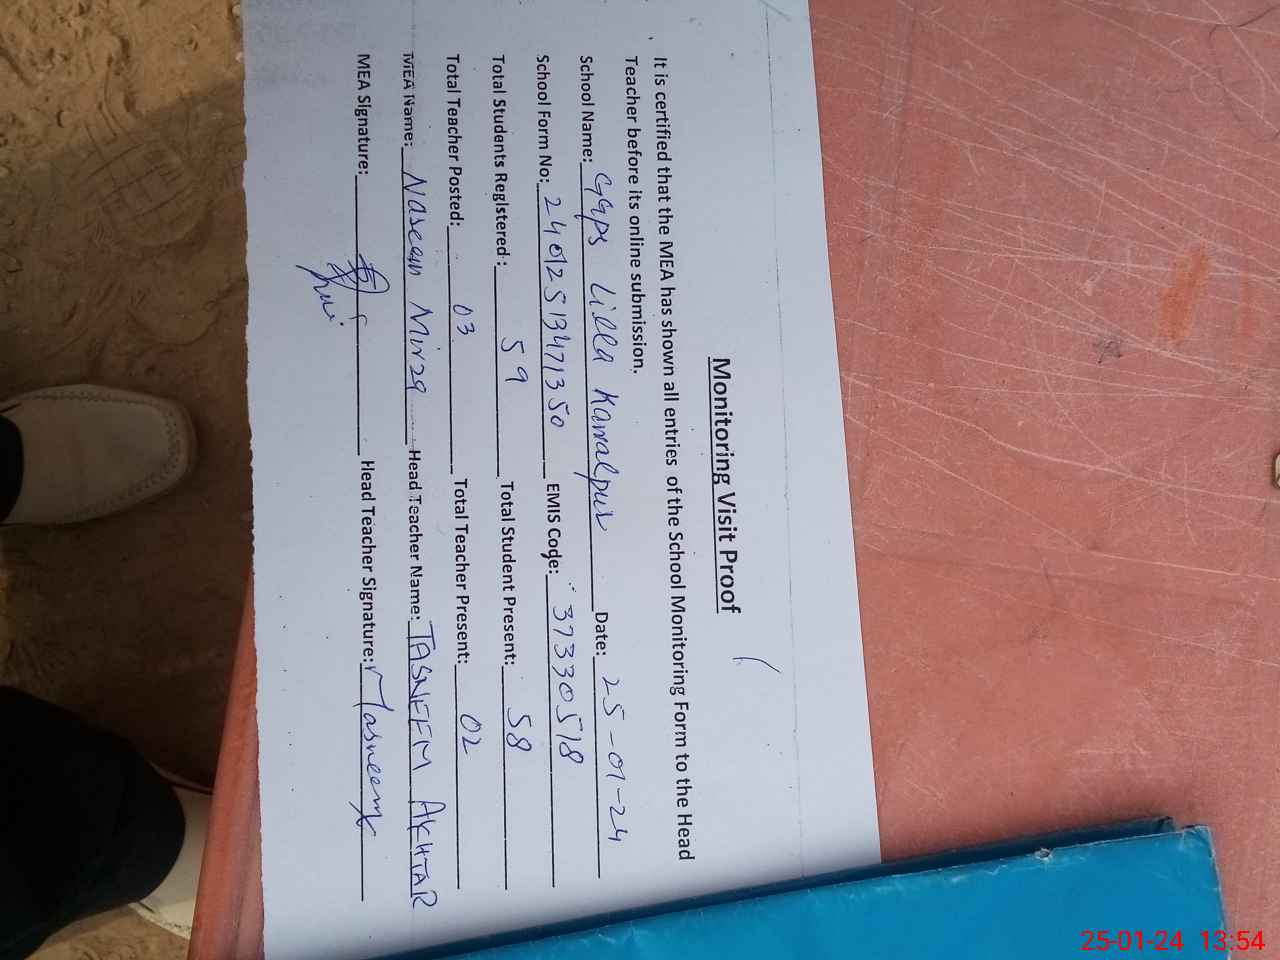 Monitoring Visit Proof
It is certified that the MEA has shown all entries of the School Monitoring Form to the Head
Teacher before its online submission.
School Name: GGPS Lilla Kamalpur Date: 25-01-24
School Form No: 24012513471350 EMIS Code: 37330518
Total Students Registered: 59 Total Student Present: 58
Total Teacher Posted: 03 Total Teacher Present: 02
MEA Name: Naseem Mirza Head Teacher Name: TASNEEM AKHTAR
MEA Signature: Head Teacher Signature: Tasneem
25-01-24 13:54